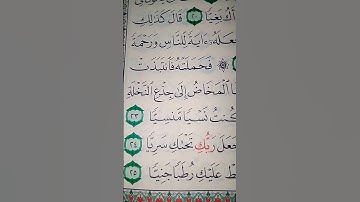 أَكُ بَغِيًّا ٢٠ قَالَ كَذَٰلِكِ
ءَايَةً لِّلنَّاسِ وَرَحْمَةً
۞ فَحَمَلَتْهُ فَٱنتَبَذَتْ
ٱلْمَخَاضُ إِلَىٰ جِذْعِ ٱلنَّخْلَةِ
كُنتُ نَسْيًا مَّنسِيًّا ٢٣
جَعَلَ رَبُّكِ تَحْتَكِ سَرِيًّا ٢٤
عَلَيْكِ رُطَبًا جَنِيًّا ٢٥